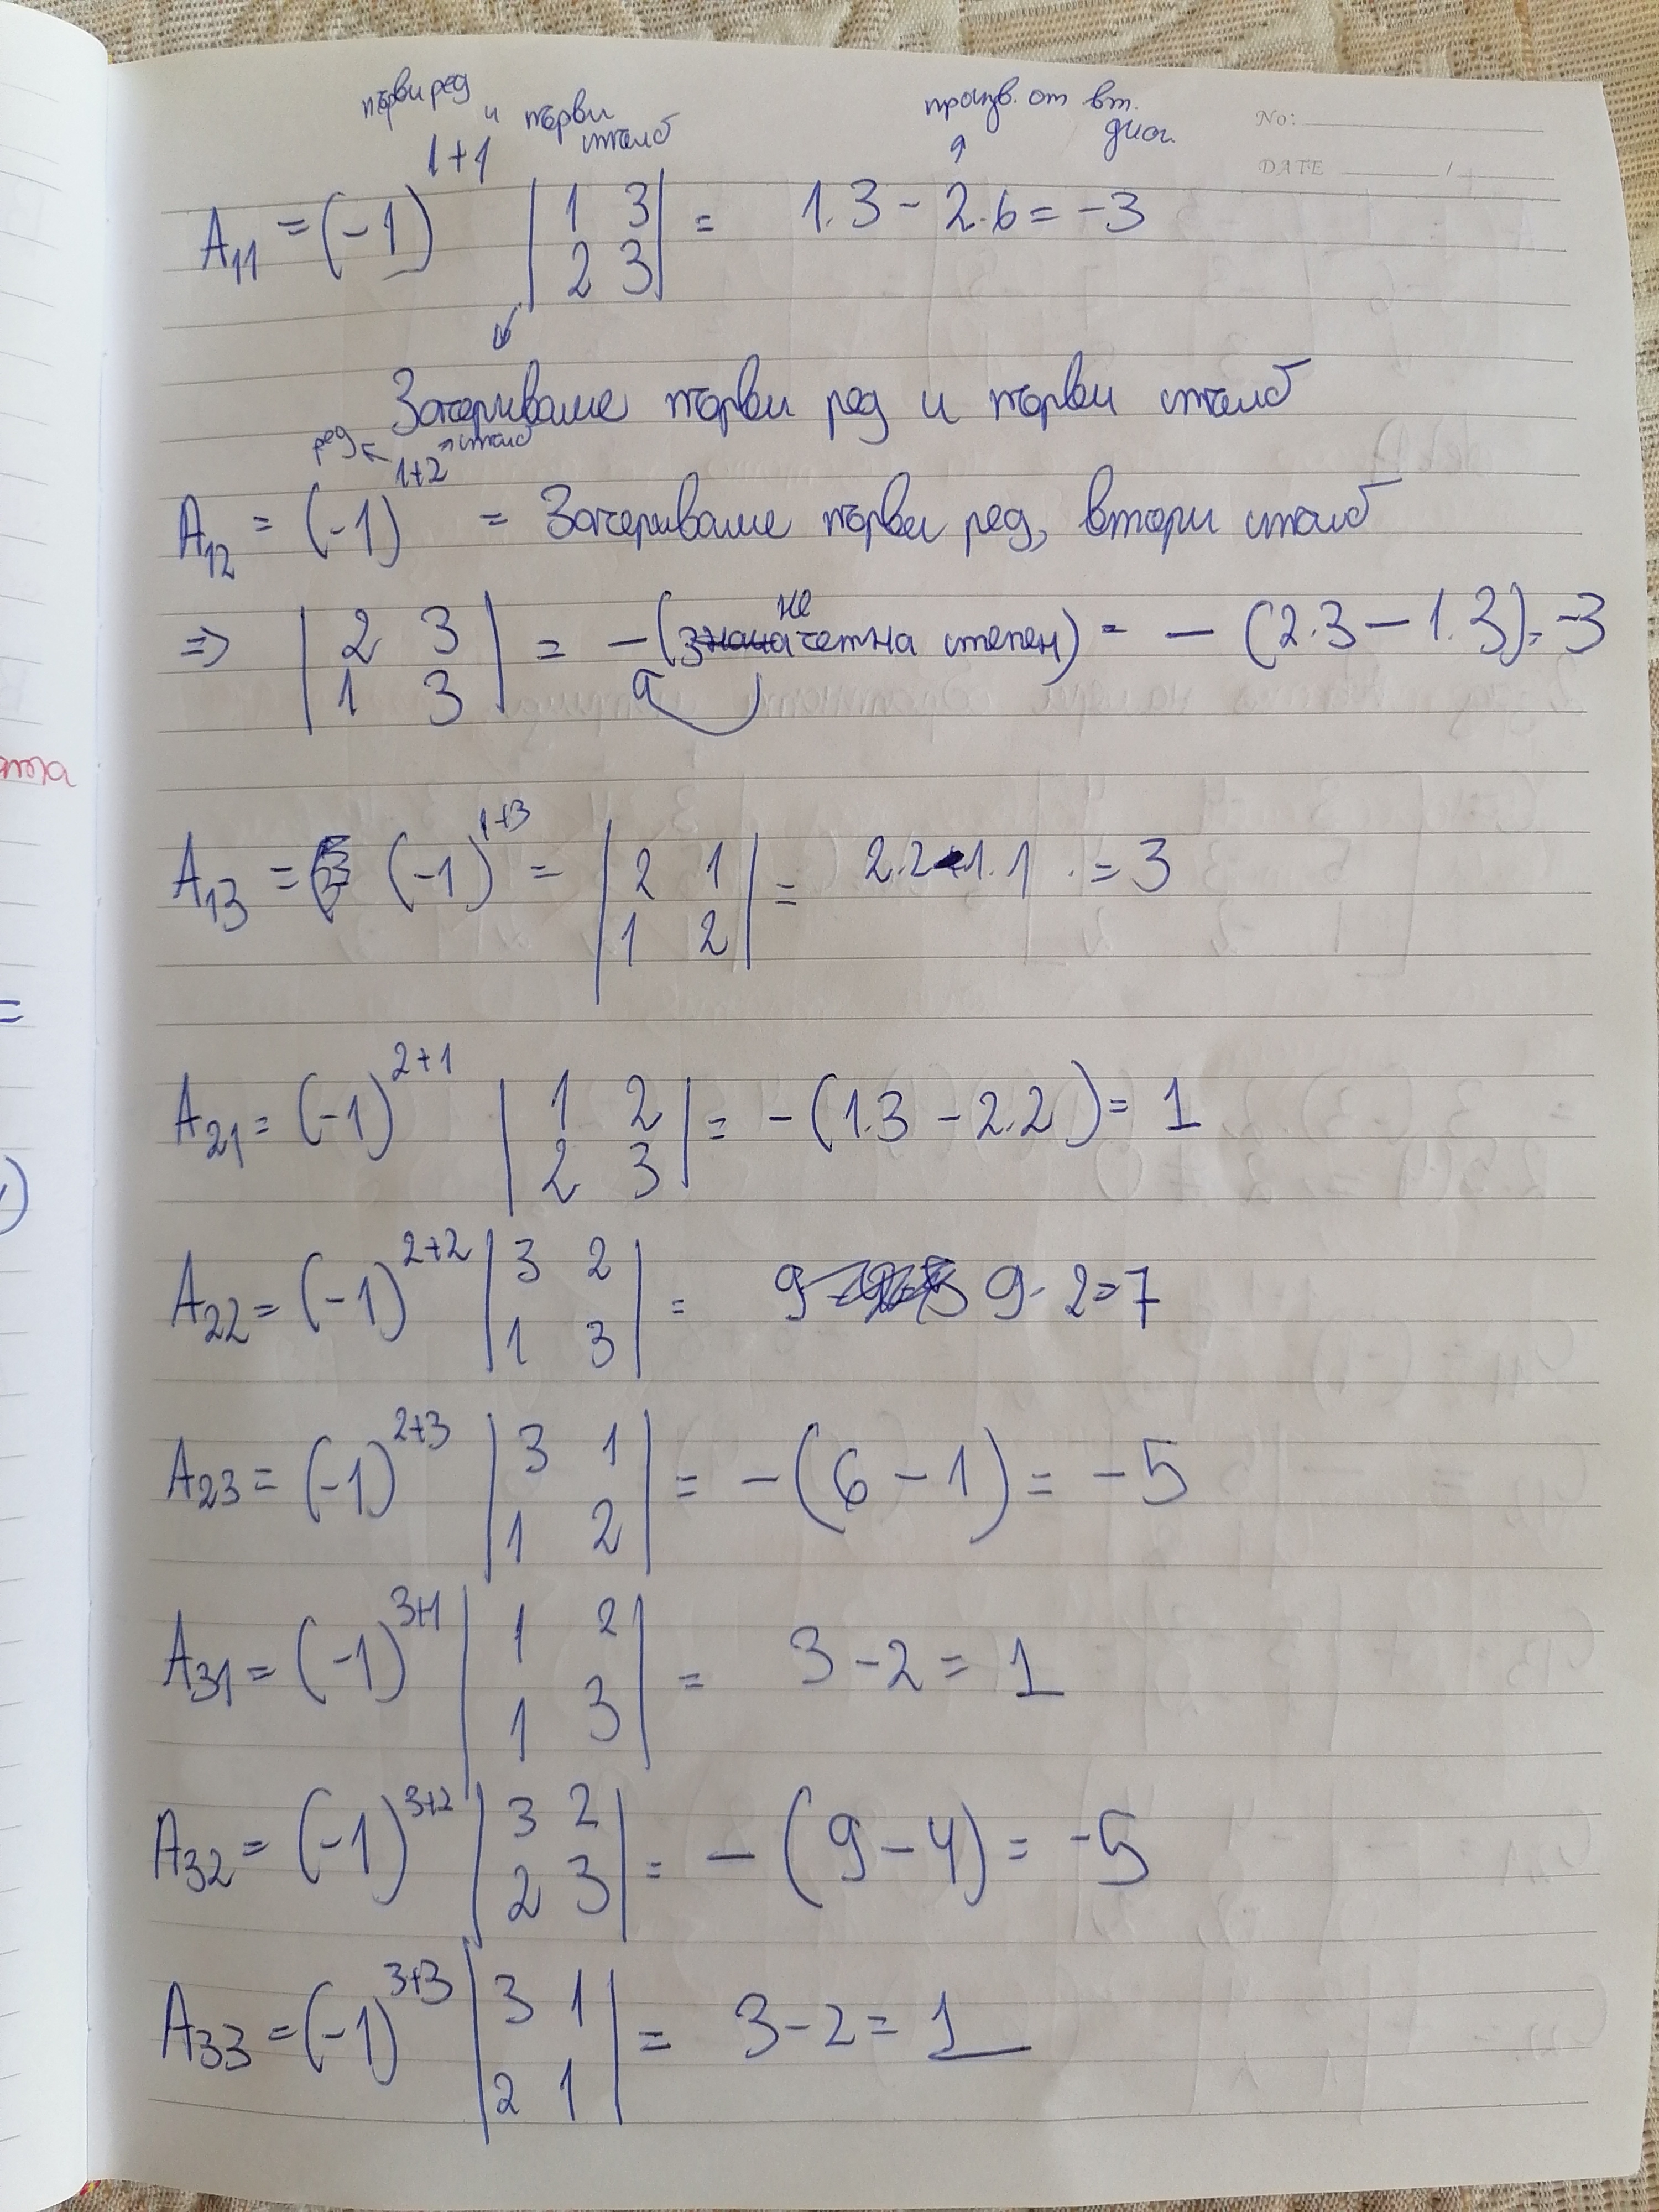 първи ред и първи стълб
произв. от вт. диаг.
No:
DATE /
A11 = (-1)^1+1 |1 3; 2 3| = 1.3 - 2.6 = -3
Зачеркваме първи ред и първи стълб
ред стълб
A12 = (-1)^1+2 = Зачеркваме първи ред, втори стълб
=> |2 3; 1 3| = -(нечетна степен) = -(2.3 - 1.3) = -3
ата
A13 = (-1)^1+3 = |2 1; 1 2| = 2.2-1.1 = 3
=
A21 = (-1)^2+1 |1 2; 2 3| = -(1.3 - 2.2) = 1
)
A22 = (-1)^2+2 |3 2; 1 3| = 9 - 2 = 7
A23 = (-1)^2+3 |3 1; 1 2| = -(6 - 1) = -5
A31 = (-1)^3+1 |1 2; 1 3| = 3 - 2 = 1
A32 = (-1)^3+2 |3 2; 2 3| = -(9 - 4) = -5
A33 = (-1)^3+3 |3 1; 2 1| = 3 - 2 = 1